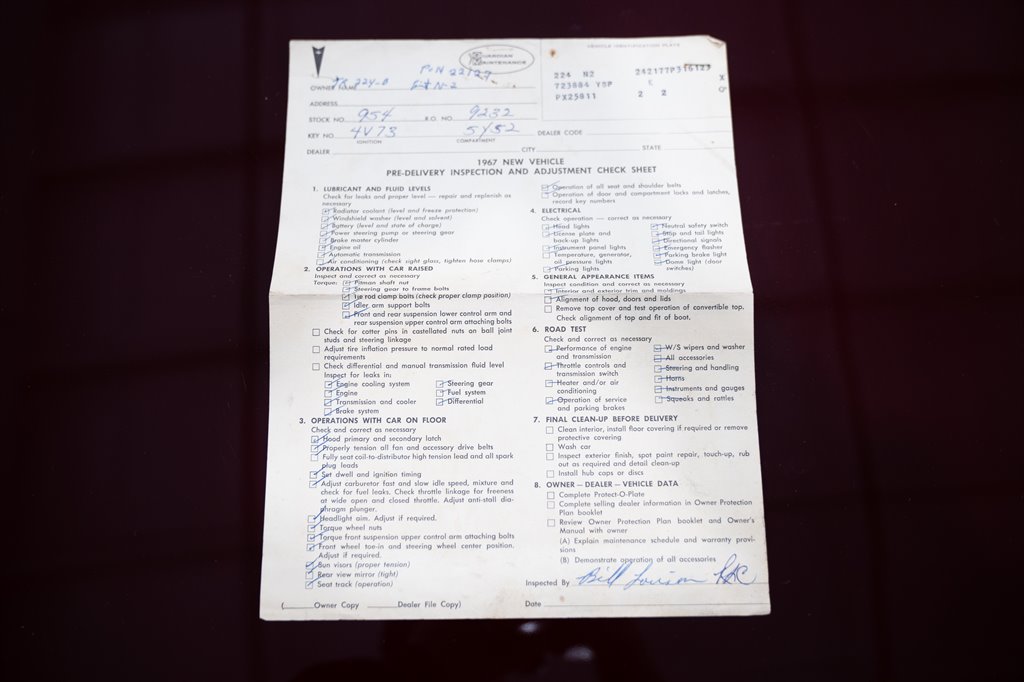 GUARDIAN MAINTENANCE
VEHICLE IDENTIFICATION PLATE
PON 22127
OWNER'S NAME
224 N2 242177P316123 X
723884 YSP K O
PX25811 2 2
ADDRESS
STOCK NO. 954 R.O. NO. 9232
KEY NO. 4V73 5Y52 DEALER CODE
IGNITION COMPARTMENT
DEALER CITY STATE
1967 NEW VEHICLE
PRE-DELIVERY INSPECTION AND ADJUSTMENT CHECK SHEET
1. LUBRICANT AND FLUID LEVELS
Check for leaks and proper level — repair and replenish as
necessary
Radiator coolant (level and freeze protection)
Windshield washer (level and solvent)
Battery (level and state of charge)
Power steering pump or steering gear
Brake master cylinder
Engine oil
Automatic transmission
Air conditioning (check sight glass, tighten hose clamps)
2. OPERATIONS WITH CAR RAISED
Inspect and correct as necessary
Torque: Pitman shaft nut
Steering gear to frame bolts
Tie rod clamp bolts (check proper clamp position)
Idler arm support bolts
Front and rear suspension lower control arm and
rear suspension upper control arm attaching bolts
Check for cotter pins in castellated nuts on ball joint
studs and steering linkage
Adjust tire inflation pressure to normal rated load
requirements
Check differential and manual transmission fluid level
Inspect for leaks in:
Engine cooling system Steering gear
Engine Fuel system
Transmission and cooler Differential
Brake system
3. OPERATIONS WITH CAR ON FLOOR
Check and correct as necessary
Hood primary and secondary latch
Properly tension all fan and accessory drive belts
Fully seat coil-to-distributor high tension lead and all spark
plug leads
Set dwell and ignition timing
Adjust carburetor fast and slow idle speed, mixture and
check for fuel leaks. Check throttle linkage for freeness
at wide open and closed throttle. Adjust anti-stall dia-
phragm plunger.
Headlight aim. Adjust if required.
Torque wheel nuts
Torque front suspension upper control arm attaching bolts
Front wheel toe-in and steering wheel center position.
Adjust if required.
Sun visors (proper tension)
Rear view mirror (tight)
Seat track (operation)
( Owner Copy Dealer File Copy)
Operation of all seat and shoulder belts
Operation of door and compartment locks and latches,
record key numbers
4. ELECTRICAL
Check operation — correct as necessary
Head lights Neutral safety switch
License plate and Stop and tail lights
back-up lights Directional signals
Instrument panel lights Emergency flasher
Temperature, generator, Parking brake light
oil pressure lights Dome light (door
Parking lights switches)
5. GENERAL APPEARANCE ITEMS
Inspect condition and correct as necessary
Interior and exterior trim and moldings
Alignment of hood, doors and lids
Remove top cover and test operation of convertible top.
Check alignment of top and fit of boot.
6. ROAD TEST
Check and correct as necessary
Performance of engine W/S wipers and washer
and transmission All accessories
Throttle controls and Steering and handling
transmission switch Horns
Heater and/or air Instruments and gauges
conditioning Squeaks and rattles
Operation of service
and parking brakes
7. FINAL CLEAN-UP BEFORE DELIVERY
Clean interior, install floor covering if required or remove
protective covering
Wash car
Inspect exterior finish, spot paint repair, touch-up, rub
out as required and detail clean-up
Install hub caps or discs
8. OWNER — DEALER — VEHICLE DATA
Complete Protect-O-Plate
Complete selling dealer information in Owner Protection
Plan booklet
Review Owner Protection Plan booklet and Owner's
Manual with owner
(A) Explain maintenance schedule and warranty provi-
sions
(B) Demonstrate operation of all accessories
Inspected By Bill
Date